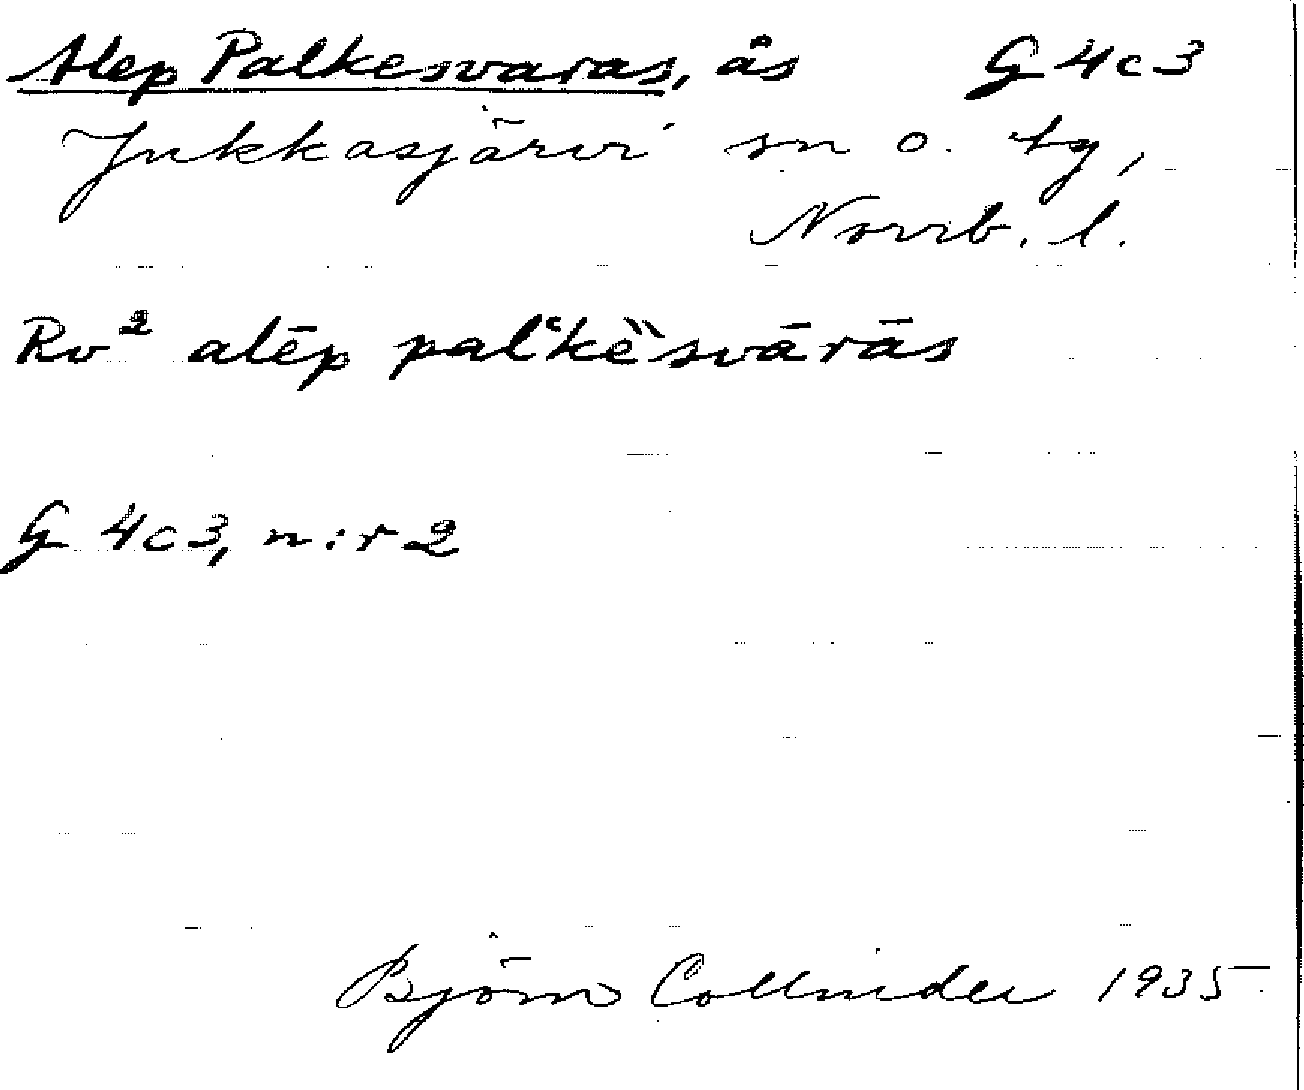 Alep Palkesvaras, ås G 4c3
Jukkasjärvi sn o. tg,
Norrb. l.
Rv² alēp palʿkè̀svārās
G 4c3, n:r 2
Björn Collinder 1935